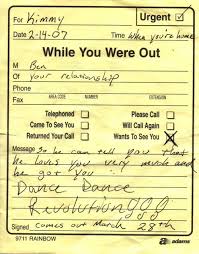 For Kimmy Urgent ☑
Date 2-14-07 Time When you're home
While You Were Out
M Ben
Of your relationship
Phone
AREA CODE NUMBER EXTENSION
Fax
Telephoned Please Call
Came To See You Will Call Again
Returned Your Call Wants To See You ☒
Message So he can tell you that
he loves you very much and
he got you
Dance Dance
Revolution!!!
Signed comes out March 28th
9711 RAINBOW adams